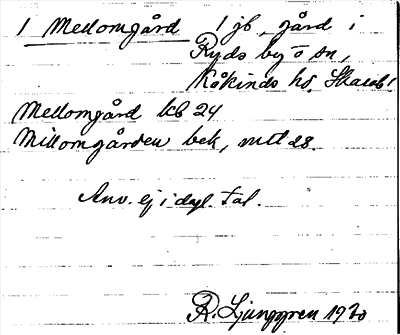 1 Mellomgård 1 jb, gård i
Ryds by o sn,
Kåkinds hd. Skarab l
Mellomgård kb 24
Millomgården bek, mtl ds.
Anv. ej i dagl. tal.
R. Ljunggren 1920